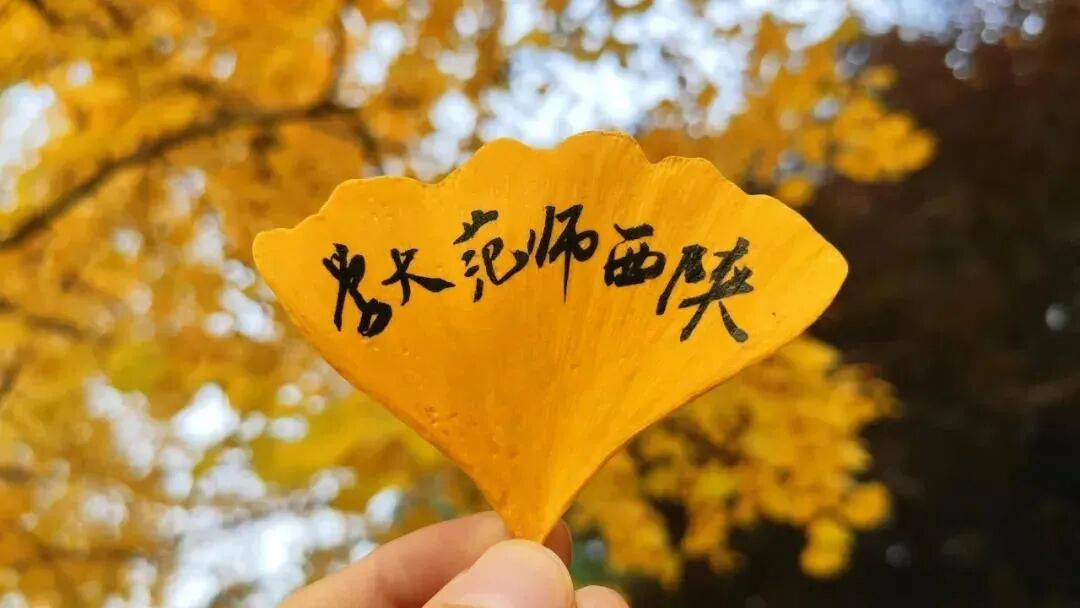 陕西师范大学